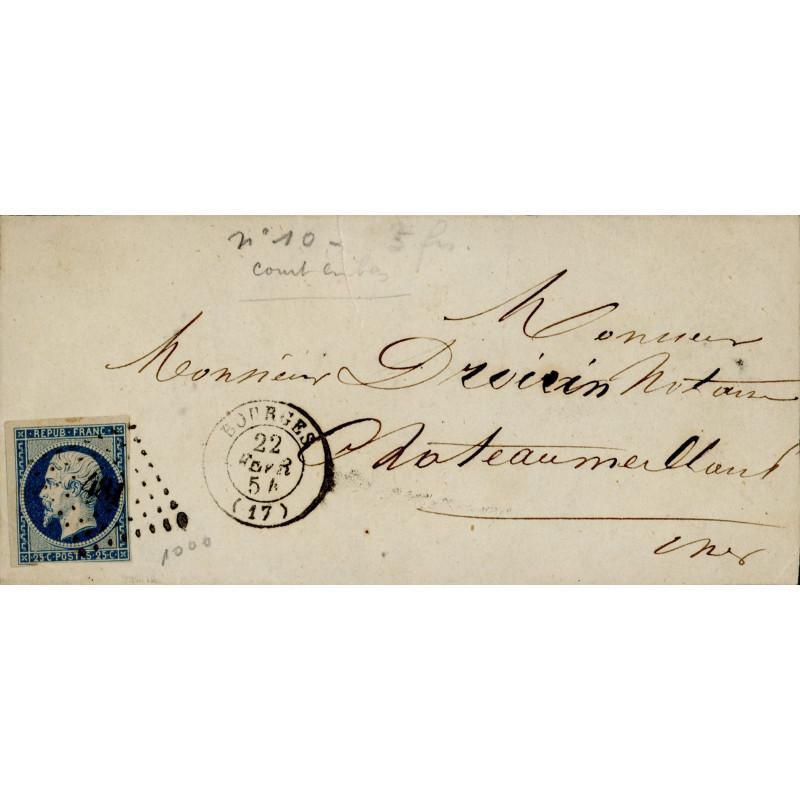 n° 10 - 5 frs.
court en bas
Monsieur
Monsieur Droisin Notaire
Chateaumeillant
Cher
BOURGES
22
FEVR
54
(17)
REPUB. FRANC.
25 C. POSTES 25 C.
1000